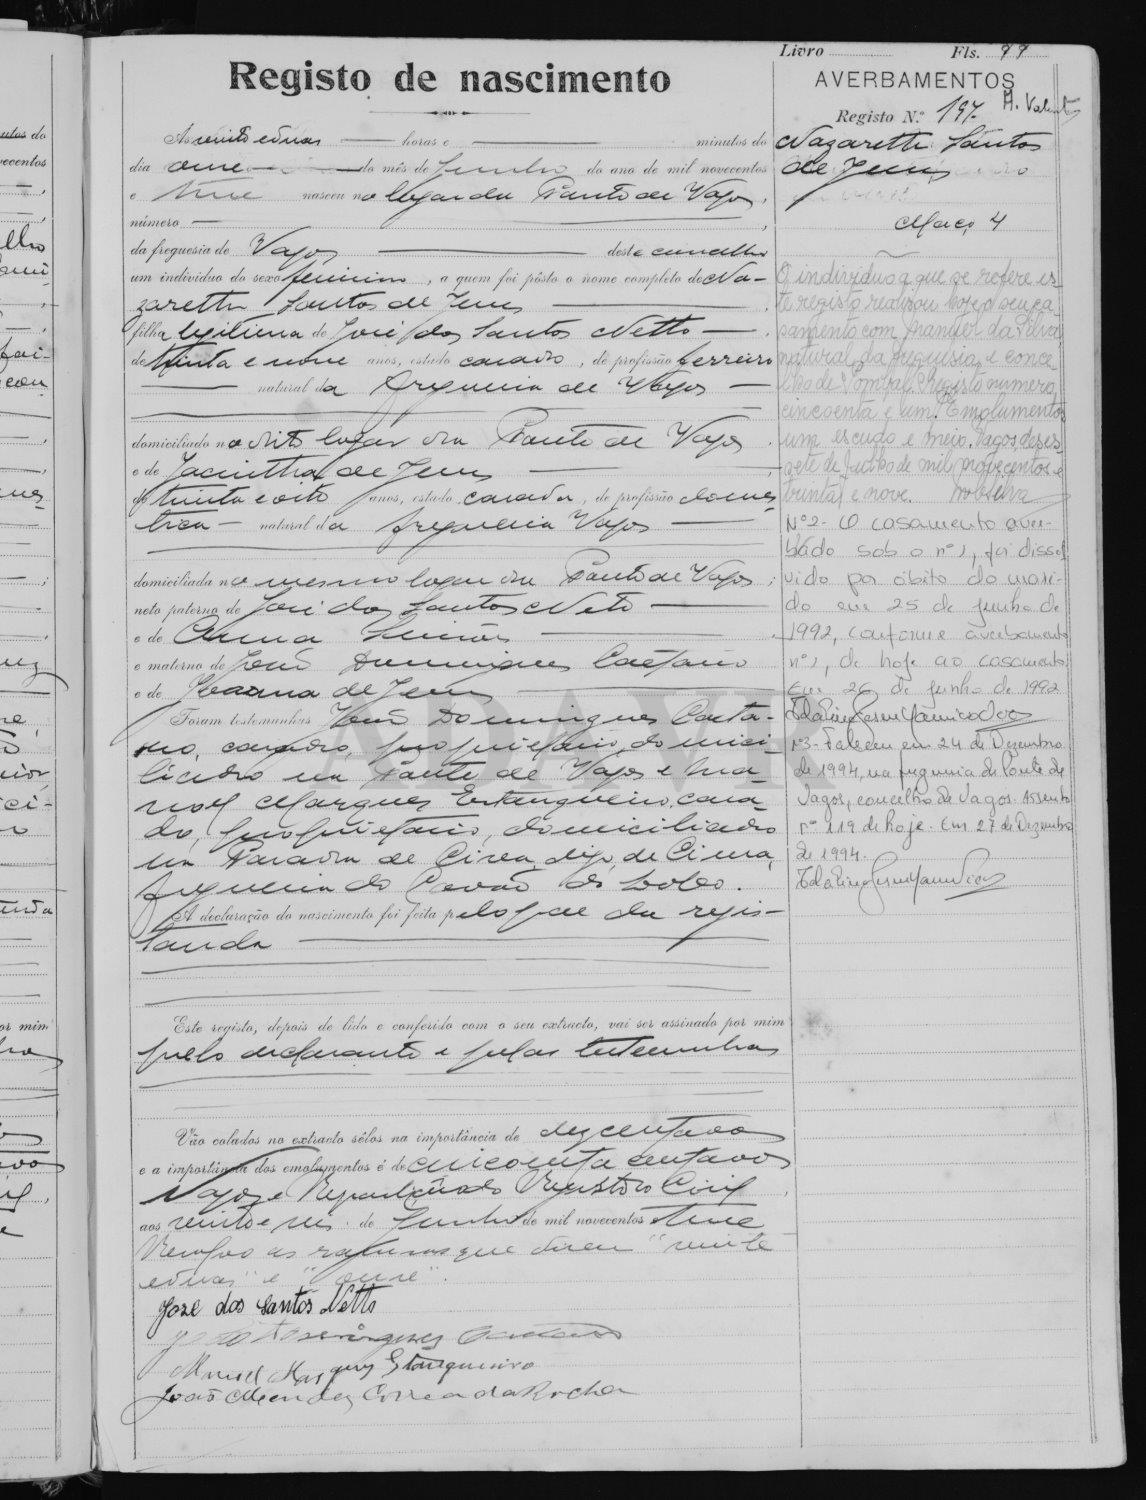 Livro Fls. 99
Registo de nascimento
AVERBAMENTOS
Registo N.º 197. A. Valente
Nazareth Santos
de Jesus
Maço 4
Ás vinte e duas horas e minutos do
dia onze do mês de Junho do ano de mil novecentos
e treze nasceu no lugar da Ponte de Vagos,
número
da freguesia de Vagos deste concelho
um individuo do sexo feminino, a quem foi pôsto o nome completo de Na-
zareth Santos de Jesus
filha legitima de José dos Santos Netto
de trinta e nove anos, estado casado, de profissão ferreiro
natural da freguesia de Vagos
domiciliado no dito lugar da Ponte de Vagos
e de Jacintha de Jesus
de trinta e oito anos, estado casada, de profissão domes-
tica natural da freguesia Vagos
domiciliada no mesmo lugar da Ponte de Vagos;
neto paterno de José dos Santos Neto
e de Anna Simões
e materno de João Domingues Caetano
e de Joanna de Jesus
Foram testemunhas João Domingues Caeta-
no, casado, proprietario, domici-
liado na Ponte de Vagos e Ma-
noel Marques Estanqueiro, casa-
do, proprietario, domiciliado
na de Cima, digo, de Cima,
freguesia do Covão do Lobo.
A declaração do nascimento foi feita pelo pae da regis-
tanda
Este registo, depois de lido e conferido com o seu extracto, vai ser assinado por mim
pelo declarante e pelas testemunhas
Vão colados no extracto sêlos na importância de dez centavos
e a importância dos emolumentos é de cincoenta centavos
Vagos e Repartição do Registo Civil,
aos vinte e seis de Junho de mil novecentos e treze
Resalvo as rasuras que dizem "vinte
e duas" e "onze".
José dos Santos Netto
João Domingues Caetano
Manuel Marques Estanqueiro
João Mendes Correa da Rocha
O indivíduo a que se refere es-
te registo realizou hoje o seu ca-
samento com Manuel da Silva
natural da freguesia e conce-
lho de Pombal. Registo número
cincoenta e um. Emolumentos
um escudo e meio. Vagos, desas-
sete de Junho de mil novecentos e
trinta e nove.
Nº2- O casamento aver-
bado sob o nº1, foi dissol-
vido por óbito do mari-
do em 25 de junho de
1992, conforme averbamento
nº1, de hoje ao casamento
Em 26 de junho de 1992
Nº3- Faleceu em 24 de Dezembro
de 1994, na freguesia de Ponte de
Vagos, concelho de Vagos. Assento
nº 119 de hoje. Em 27 de Dezembro
de 1994.
ADAVR